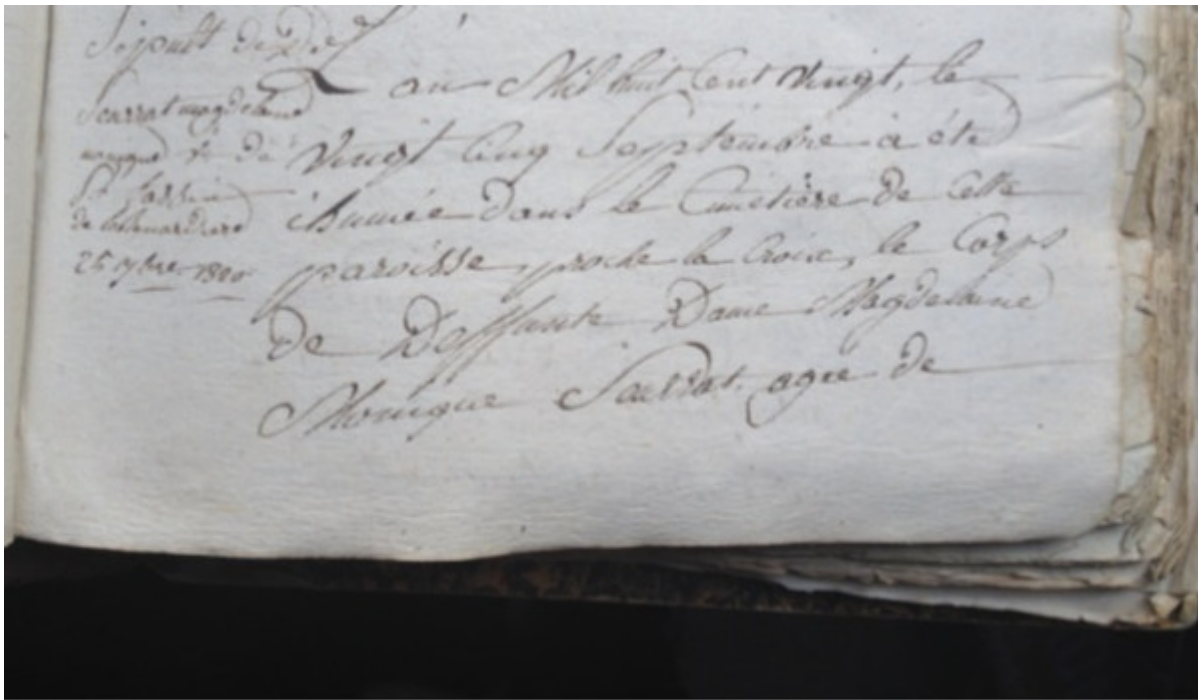 Sépult de
Sarrat magdelaine
monique Ve de
St
25 7bre 1820
L'an Mil huit Cent Vingt, le
Vingt Cinq Septembre a été
ihumée Dans le Cimetière de Cette
paroisse, proche la Croix, le Corps
de Deffunte Dame Magdelaine
Monique Sarrat agée de